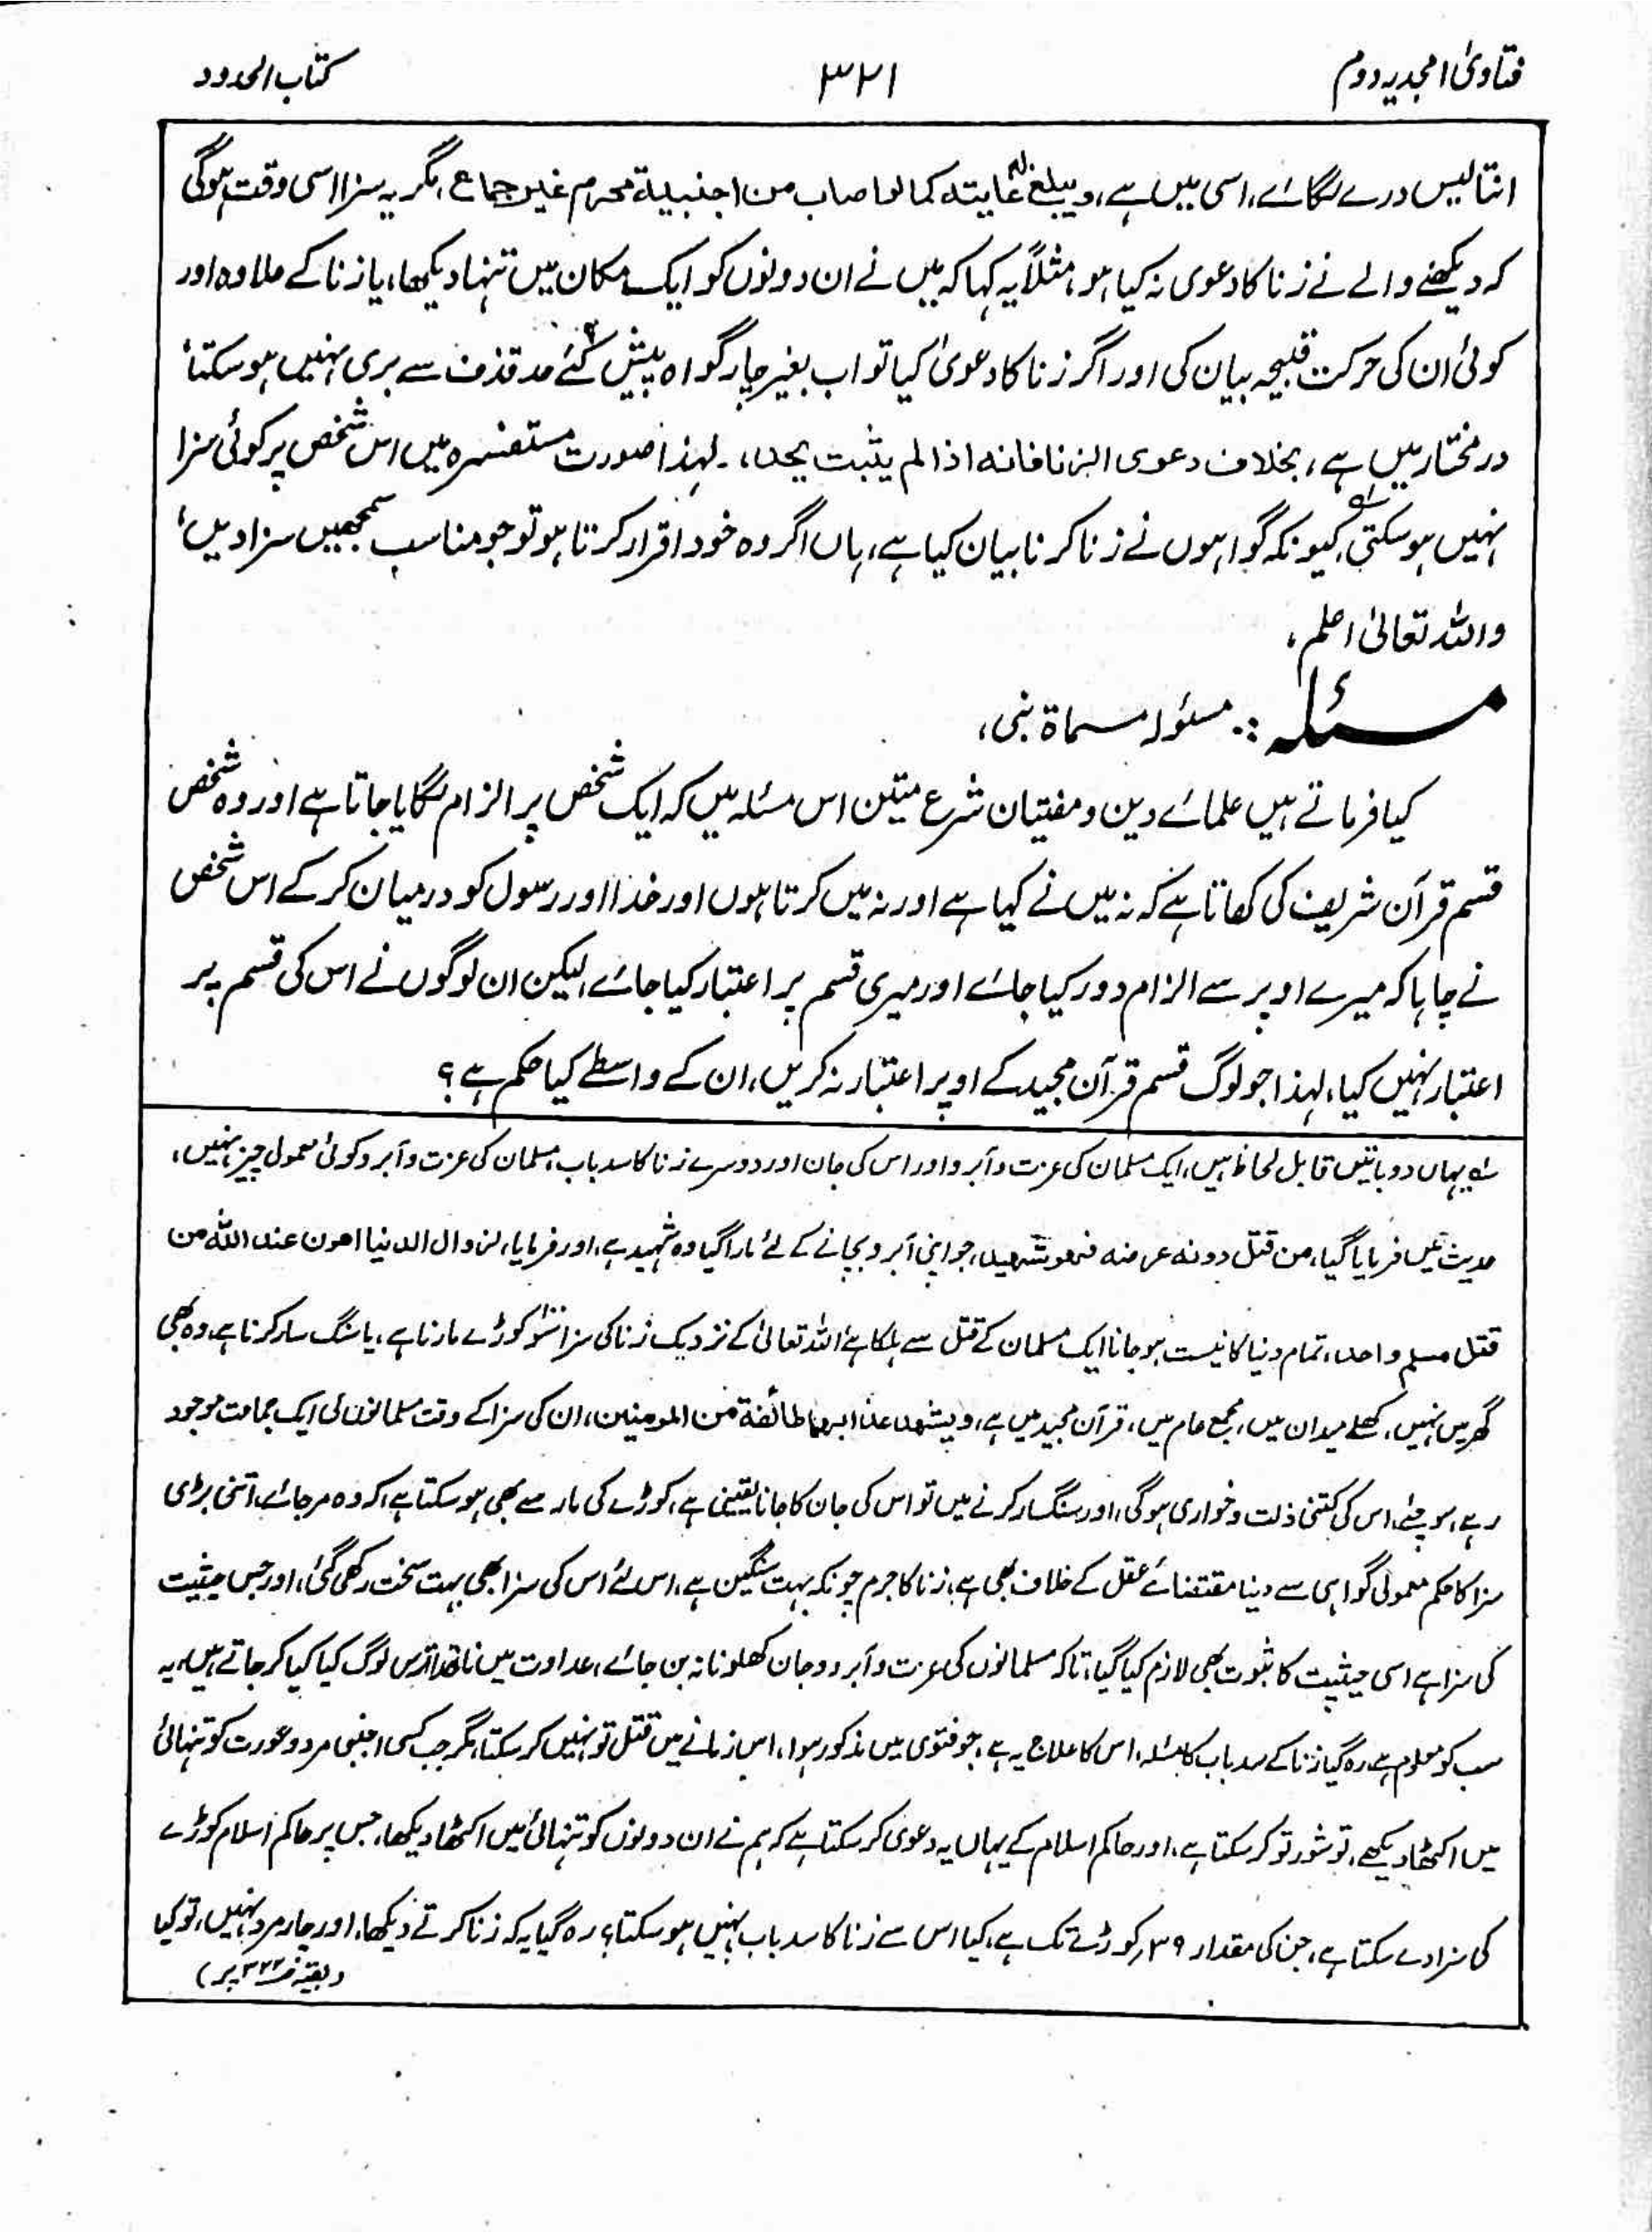 فتاویٰ امجدیہ دوم ۳۲۱ کتاب الحدود
انتالیس درے لگائے، اسی میں ہے، ویبلغ غایتہ کما لو اصاب من اجنبیۃ محرم غیر جماع، مگر یہ سزا اسی وقت ہوگی
کہ دیکھنے والے نے زنا کا دعوی نہ کیا ہو، مثلاً یہ کہا کہ میں نے ان دونوں کو ایک مکان میں تنہا دیکھا، یا زنا کے علاوہ اور
کوئی ان کی حرکت قبیحہ بیان کی اور اگر زنا کا دعویٰ کیا تو اب بغیر چار گواہ پیش کئے حد قذف سے بری نہیں ہو سکتا،
در مختار میں ہے، بخلاف دعوی الزنا فانہ اذا لم یثبت یحد، لہذا صورت مستفسرہ میں اس شخص پر کوئی سزا
نہیں ہو سکتی، کیونکہ گواہوں نے زنا کرنا بیان کیا ہے، ہاں اگر وہ خود اقرار کرتا ہو تو جو مناسب سمجھیں سزا دیں،
واللہ تعالیٰ اعلم،
مسئلہ :. مسئولہ مسماۃ بنی،
کیا فرماتے ہیں علمائے دین و مفتیان شرع متین اس مسئلہ میں کہ ایک شخص پر الزام لگایا جاتا ہے اور وہ شخص
قسم قرآن شریف کی کھاتا ہے کہ نہ میں نے کہا ہے اور نہ میں کرتا ہوں اور خدا اور رسول کو درمیان کر کے اس شخص
نے چاہا کہ میرے اوپر سے الزام دور کیا جائے اور میری قسم پر اعتبار کیا جائے، لیکن ان لوگوں نے اس کی قسم پر
اعتبار نہیں کیا، لہذا جو لوگ قسم قرآن مجید کے اوپر اعتبار نہ کریں، ان کے واسطے کیا حکم ہے؟
یہاں دو باتیں قابل لحاظ ہیں، ایک مسلمان کی عزت و آبرو اور اس کی جان اور دوسرے زنا کا سد باب، مسلمان کی عزت و آبرو کوئی معمولی چیز نہیں،
حدیث میں فرمایا گیا، من قتل دونہ عرضہ فھو شھید، جو اپنی آبرو بچانے کے لئے مارا گیا وہ شہید ہے، اور فرمایا، لزوال الدنیا اھون عند اللہ من
قتل مسلم واحد، تمام دنیا کا نیست ہو جانا ایک مسلمان کے قتل سے ہلکا ہے، اللہ تعالیٰ کے نزدیک زنا کی سزا سو کوڑے مارنا ہے، یا سنگ سار کرنا ہے، وہ بھی
گھر میں نہیں، کھلے میدان میں، مجمع عام میں، قرآن مجید میں ہے، ویشھد عذابھما طائفۃ من المومنین، ان کی سزا کے وقت مسلمانوں کی ایک جماعت موجود
رہے، سوچئے، اس کی کتنی ذلت و خواری ہوگی، اور سنگسار کرنے میں تو اس کی جان کا جانا یقینی ہے، کوڑے کی مار سے بھی ہو سکتا ہے، کہ وہ مر جائے، اتنی بڑی
سزا کا حکم معمولی گواہی سے دینا مقتضائے عقل کے خلاف بھی ہے، زنا کا جرم چونکہ بہت سنگین ہے، اس لئے اس کی سزا بھی بہت سخت رکھی گئی، اور جس حیثیت
کی سزا ہے اسی حیثیت کا ثبوت بھی لازم کیا گیا، تاکہ مسلمانوں کی عزت و آبرو و جان کھلونا نہ بن جائے، عداوت میں ناخدا ترس لوگ کیا کیا کر جاتے ہیں، یہ
سب کو معلوم ہے، رہ گیا زنا کے سد باب کا مسئلہ، اس کا علاج یہ ہے، جو فتوی میں مذکور ہوا، اس زمانے میں قتل تو نہیں کر سکتا، مگر جب کسی اجنبی مرد و عورت کو تنہائی
میں اکٹھا دیکھے، تو شور تو کر سکتا ہے، اور حاکم اسلام کے یہاں یہ دعوی کر سکتا ہے کہ ہم نے ان دونوں کو تنہائی میں اکٹھا دیکھا، جس پر حاکم اسلام کوڑے
کی سزا دے سکتا ہے، جن کی مقدار ۳۹ کوڑے تک ہے، کیا اس سے زنا کا سد باب نہیں ہو سکتا، رہ گیا یہ کہ زنا کرتے دیکھا، اور چار مرد نہیں، تو کیا
(بقیہ ص ۳۲۲ پر)